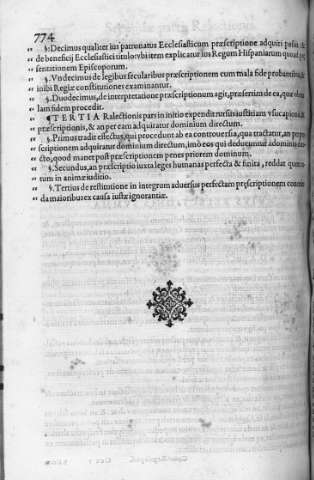 774
„ §. Decimus qualiter ius patronatus Ecclesiasticum præscriptione adquiri possit, &
„ de beneficij Ecclesiastici titulo: vbi item explicatur ius Regum Hispaniarum quoad
„ sentationem Episcoporum.
„ §. Vndecimus de legibus secularibus præscriptionem cum mala fide probantibus, &
„ inibi Regiæ constitutiones examinantur.
„ §. Duodecimus, de interpretatione præscriptionum agit, præsertim de ea, quæ
„ lam fidem procedit.
„ ¶ TERTIA Relectionis pars in initio expendit rursus iustitiam vsucapionis, &
„ præscriptionis, & an per eam adquiratur dominium directum.
„ §. Primus tradit effectus, qui procedunt ab ea controuersia, qua tractatur, an per
„ scriptionem adquiratur dominium directum, imò eos qui deducuntur à dominio
„ cto, quod manet post præscriptionem penes priorem dominum.
„ §. Secundus, an præscriptio iuxta leges humanas perfecta & finita, reddat
„ tum in animæ iudicio.
„ §. Tertius de restitutione in integrum aduersus perfectam præscriptionem
„ da maioribus ex causa iustæ ignorantiæ.